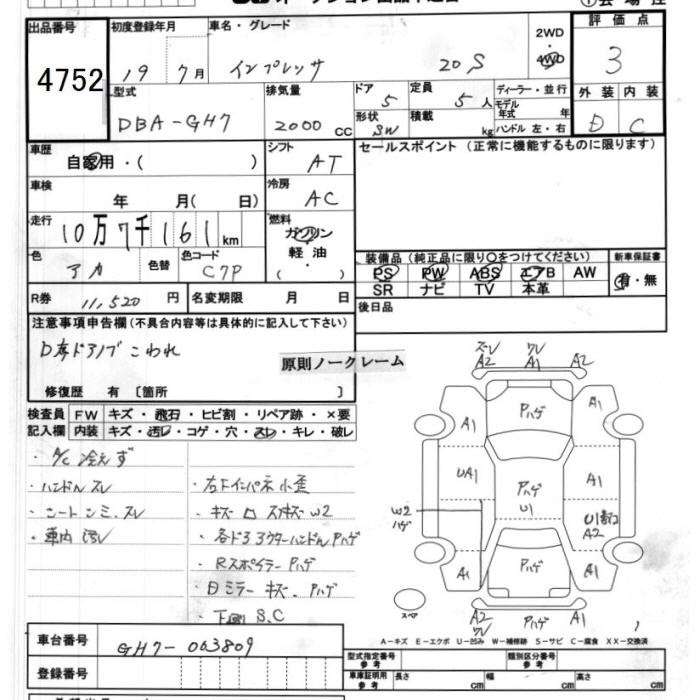 出品番号 初度登録年月 車名・グレード 2WD 評価点
4752 19 7月 インプレッサ 20S ・4WD 3
型式 排気量 ドア 5 定員 5人 ディーラー・並行 外装 内装
DBA-GH7 2000 cc 形状 SW 積載 kg モデル年式 年 D C
ハンドル 左・右
車歴 シフト セールスポイント (正常に機能するものに限ります)
自家用・( ) AT
車検 冷房
年 月( 日) AC
走行 燃料
10万7千161km ガソリン
軽油
色 アカ 色替 色コード C7P ( )
装備品 (純正品に限り○をつけてください) 新車保証書
PS PW ABS エアB AW 有・無
SR ナビ TV 本革
R券 11,520 円 名変期限 月 日 後日品
注意事項申告欄(不具合内容等は具体的に記入して下さい)
D席ドアノブ こわれ
原則ノークレーム
修復歴 有 [箇所 ]
検査員 FW キズ・飛石・ヒビ割・リペア跡・×要
記入欄 内装 キズ・汚レ・コゲ・穴・スレ・キレ・破レ
・A/C 冷えず
・ハンドル スレ
・シート シミ、スレ
・車内 汚レ
・右Fインパネ小歪
・各ドアアウターハンドルPハゲ
・Rスポイラー Pハゲ
・日ミラー キズ・Pハゲ
・下廻 S.C
ズレ ワレ
A2 A1 A2
A1 Pハゲ A1
UA1 Pハゲ A1
U1
W2 ハゲ
A2
A1 Pハゲ A1
スペア
A2 Pハゲ A1
ワレ
A-キズ E-エクボ U-凹み W-補修跡 S-サビ C-腐食 XX-交換済
車台番号 GH7-063809
登録番号
型式指定番号 参考 類別区分番号 参考
車庫証明用 参考 長さ cm 幅 cm 高さ cm